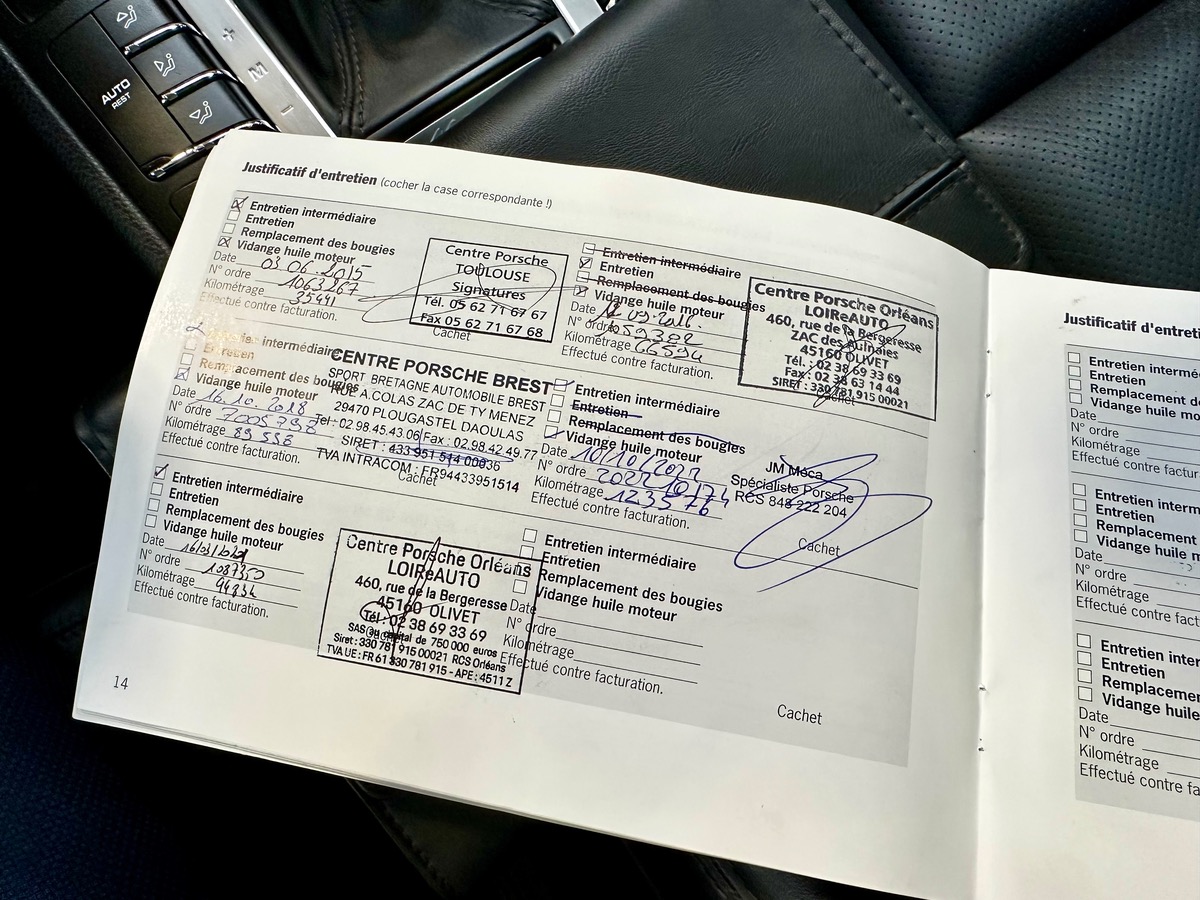 AUTO
REST
+
M
-
Justificatif d'entretien (cocher la case correspondante !)
Entretien intermédiaire
Entretien
Remplacement des bougies
Vidange huile moteur
Date 03.06.2015
N° ordre 1063267
Kilométrage 35441
Effectué contre facturation.
Centre Porsche
TOULOUSE
Signatures
Tél. 05 62 71 67 67
Fax 05 62 71 67 68
Cachet
Entretien intermédiaire
Entretien
Remplacement des bougies
Vidange huile moteur
Date
N° ordre
Kilométrage 66594
Effectué contre facturation.
Centre Porsche Orléans
LOIReAUTO
460, rue de la Bergeresse
ZAC des Aulnaies
45160 OLIVET
Tél. : 02 38 69 33 69
Fax : 02 38 63 14 44
SIRET : 330 781 915 00021
Cachet
Entretien intermédiaire
Entretien
Remplacement des bougies
Vidange huile moteur
Date 16.10.2018
N° ordre 7005798
Kilométrage 89558
Effectué contre facturation.
CENTRE PORSCHE BREST
SPORT BRETAGNE AUTOMOBILE BREST
RUE A.COLAS ZAC DE TY MENEZ
29470 PLOUGASTEL DAOULAS
Tel : 02.98.45.43.06 Fax : 02.98.42.49.77
SIRET : 433 951 514 00036
TVA INTRACOM : FR94433951514
Cachet
Entretien intermédiaire
Entretien
Remplacement des bougies
Vidange huile moteur
Date 10/10/2022
N° ordre
Kilométrage 123576
Effectué contre facturation.
JM Méca
Spécialiste Porsche
RCS 848 222 204
Cachet
Entretien intermédiaire
Entretien
Remplacement des bougies
Vidange huile moteur
Date
N° ordre 1087350
Kilométrage 94834
Effectué contre facturation.
Centre Porsche Orléans
LOIReAUTO
460, rue de la Bergeresse
45160 OLIVET
Tél : 02 38 69 33 69
SAS au capital de 750 000 euros
Siret : 330 781 915 00021 RCS Orléans
TVA UE : FR 61 330 781 915 - APE : 4511 Z
Cachet
Entretien intermédiaire
Entretien
Remplacement des bougies
Vidange huile moteur
Date
N° ordre
Kilométrage
Effectué contre facturation.
Cachet
14
Justificatif d'entreti
Entretien intermé
Entretien
Remplacement
Vidange huile m
Date
N° ordre
Kilométrage
Effectué contre fac
Entretien interm
Entretien
Remplacemen
Vidange huile m
Date
N° ordre
Kilométrage
Effectué contre fact
Entretien inter
Entretien
Remplaceme
Vidange huile
Date
N° ordre
Kilométrage
Effectué contre fa